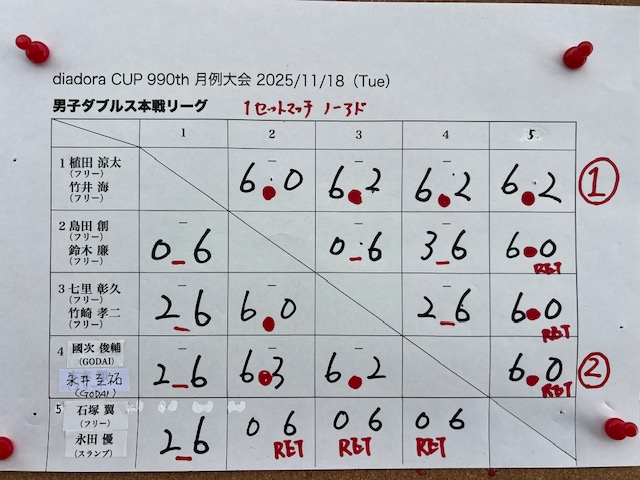 diadora CUP 990th 月例大会 2025/11/18（Tue）
男子ダブルス本戦リーグ 1セットマッチ ノーアド
1 2 3 4 5
1 植田 涼太
（フリー）
竹井 海
（フリー）
6.0 6.2 6.2 6.2 ①
2 島田 創
（フリー）
鈴木 廉
（フリー）
0-6 0-6 3-6 6.0
RET
3 七里 彰久
（フリー）
竹崎 孝二
（フリー）
2-6 6.0 2-6 6.0
RET
4 國次 俊輔
(GODAI)
永井 至祐
(GODAI)
2-6 6.3 6.2 6.0 ②
RET
5 石塚 翼
（フリー）
永田 優
（スランプ）
2-6 0 6 0 6 0 6
RET RET RET